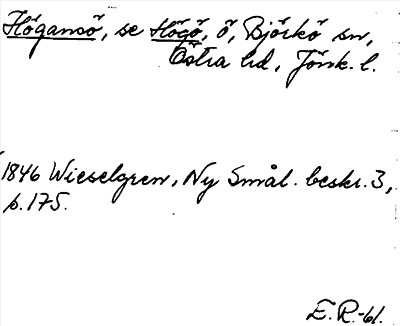 Högansö, se Högö, ö, Björkö sn,
Östra hd, Jönk. l.
1846 Wieselgren, Ny Smål. beskr. 3,
p. 175.
E. R. -61.